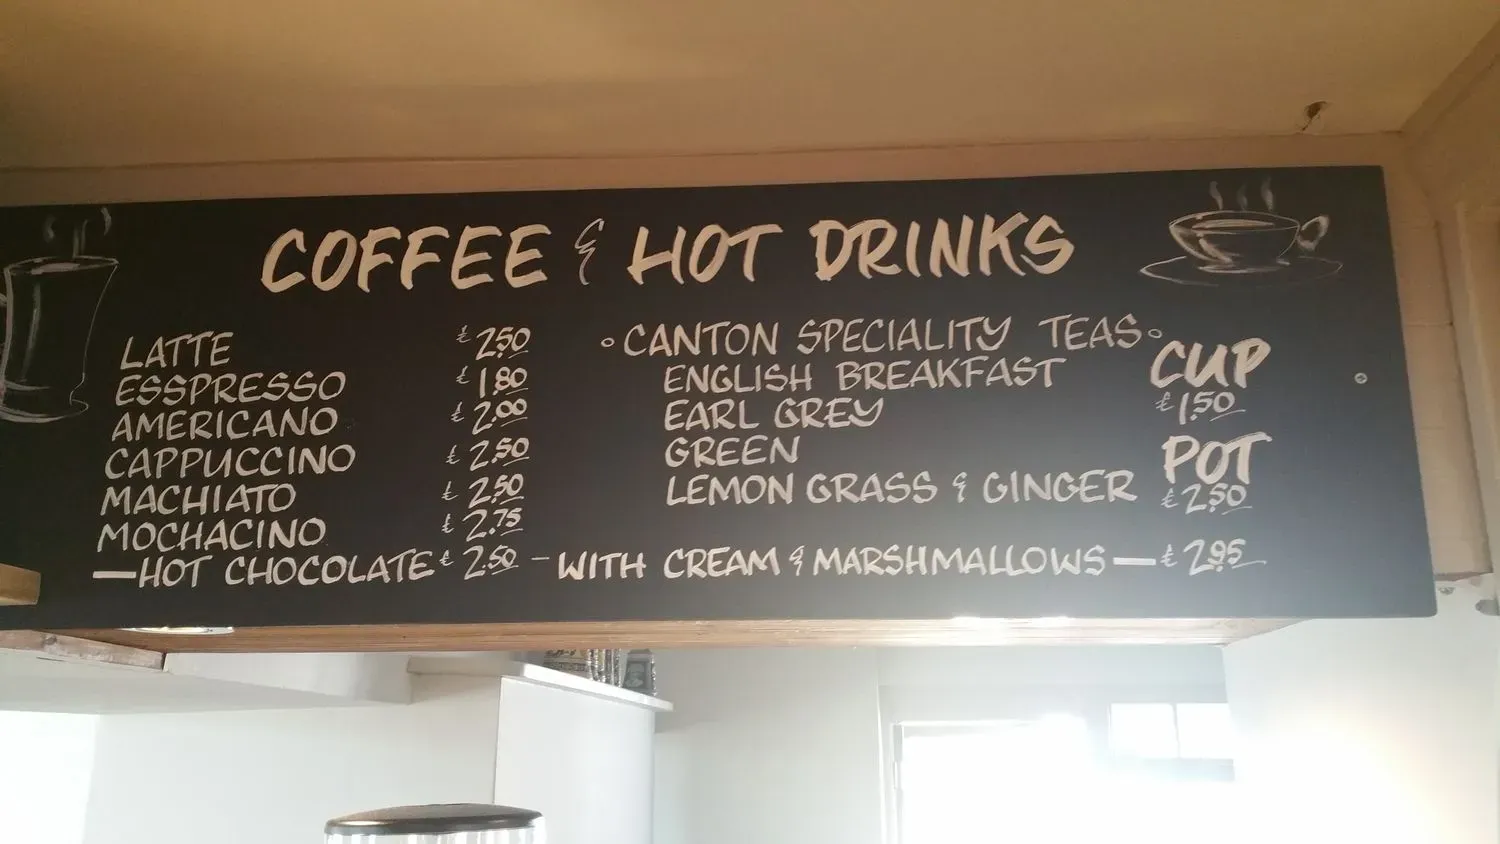 COFFEE & HOT DRINKS
LATTE £2.50
ESSPRESSO £1.80
AMERICANO £2.00
CAPPUCCINO £2.50
MACHIATO £2.50
MOCHACINO £2.75
—HOT CHOCOLATE £2.50 –WITH CREAM & MARSHMALLOWS— £2.95
◦CANTON SPECIALITY TEAS◦
ENGLISH BREAKFAST
EARL GREY
GREEN
LEMON GRASS & GINGER
CUP
£1.50
POT
£2.50